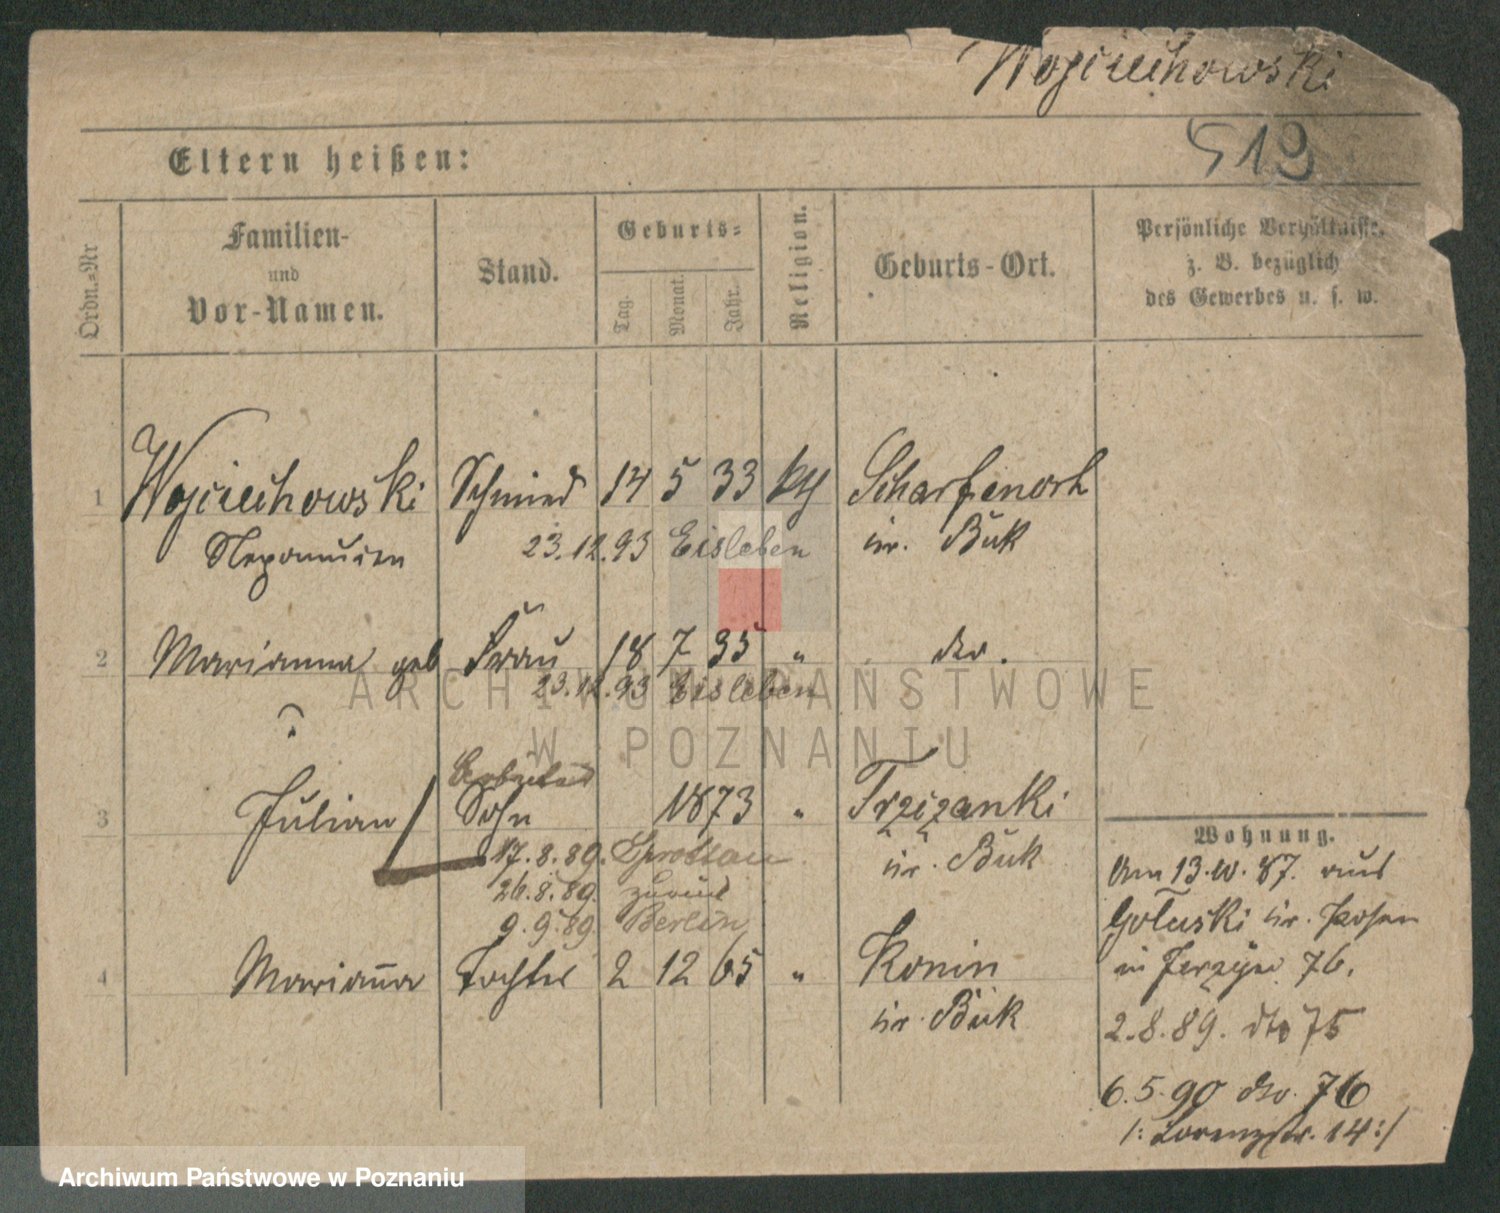 Wojciechowski
519
Eltern heißen:
Ordn.-Nr
Familien-
und
Vor-Namen.
Stand.
Geburts-
Tag.
Monat.
Jahr.
Religion.
Geburts-Ort.
Persönliche Verhältnisse,
z. B. bezüglich
des Gewerbes u. s. w.
1 Wojciechowski Schmied 14 5 33 Scharfenort
Nepomucen 23.12.93 Eisleben kr. Buk
2 Marianna geb Frau 18 7 35 " dto.
? 23.12.93 Eisleben
Arbeiter
3 Julian Sohn 1873 " Trzczanki
17.8.89. Sprottau kr. Buk
26.8.89. zurück
9.9.89. Berlin
4 Marianna Tochter 2 12 65 " Konin
kr. Buk
Wohnung.
Am 13.10.87. aus
Gołuski kr. Posen
in Jerzyce 76.
2.8.89. dto 75
6.5.90 dto. 76
/: Lorenzstr. 14 :/
ARCHIWUM PAŃSTWOWE
W POZNANIU
Archiwum Państwowe w Poznaniu